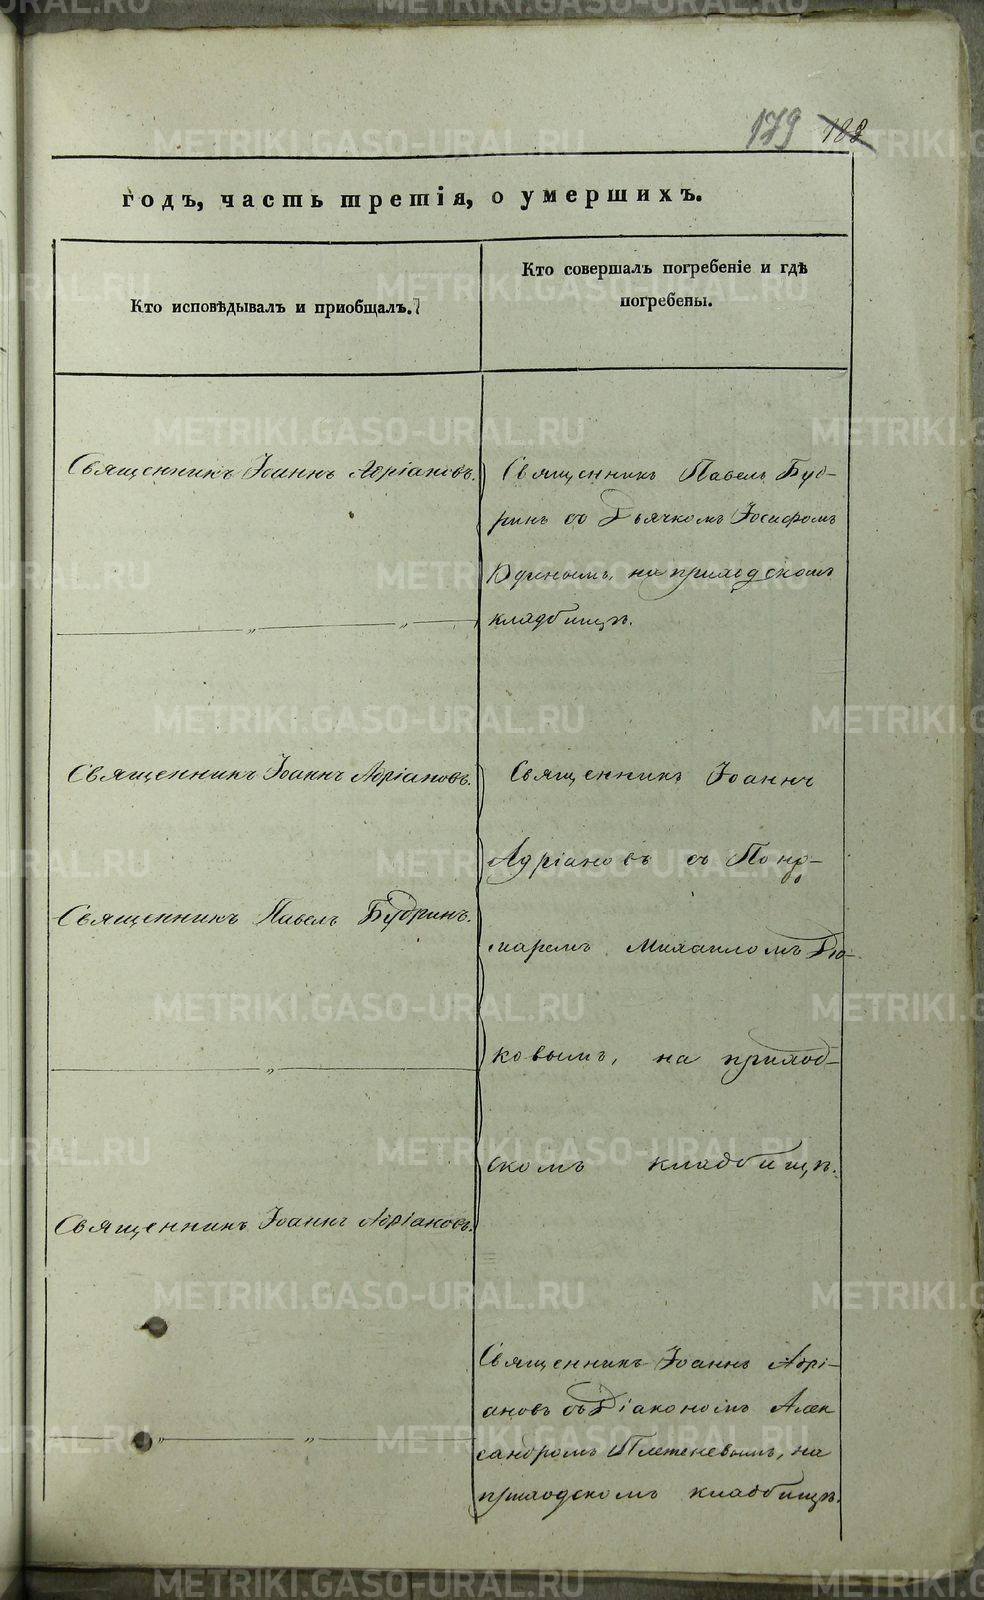 179 188
годъ, часть третія, о умершихъ.
Кто исповѣдывалъ и пріобщалъ.
Кто совершалъ погребеніе и гдѣ
погребены.
Священникъ Іоаннъ Адріановъ.
Священникъ Павелъ Буд-
ринъ съ Дьячкомъ Іосифомъ
на приходскомъ
кладбищѣ.
Священникъ Іоаннъ Адріановъ.
Священникъ Павелъ Будринъ.
Священникъ Іоаннъ
Адріановъ съ Поно-
маремъ Михаиломъ
ковымъ, на приход-
скомъ кладбищѣ.
Священникъ Іоаннъ Адріановъ.
Священникъ Іоаннъ Адрі-
ановъ съ Діакономъ Алек
сандромъ Плетеневымъ, на
приходскомъ кладбищѣ.
METRIKI.GASO-URAL.RU